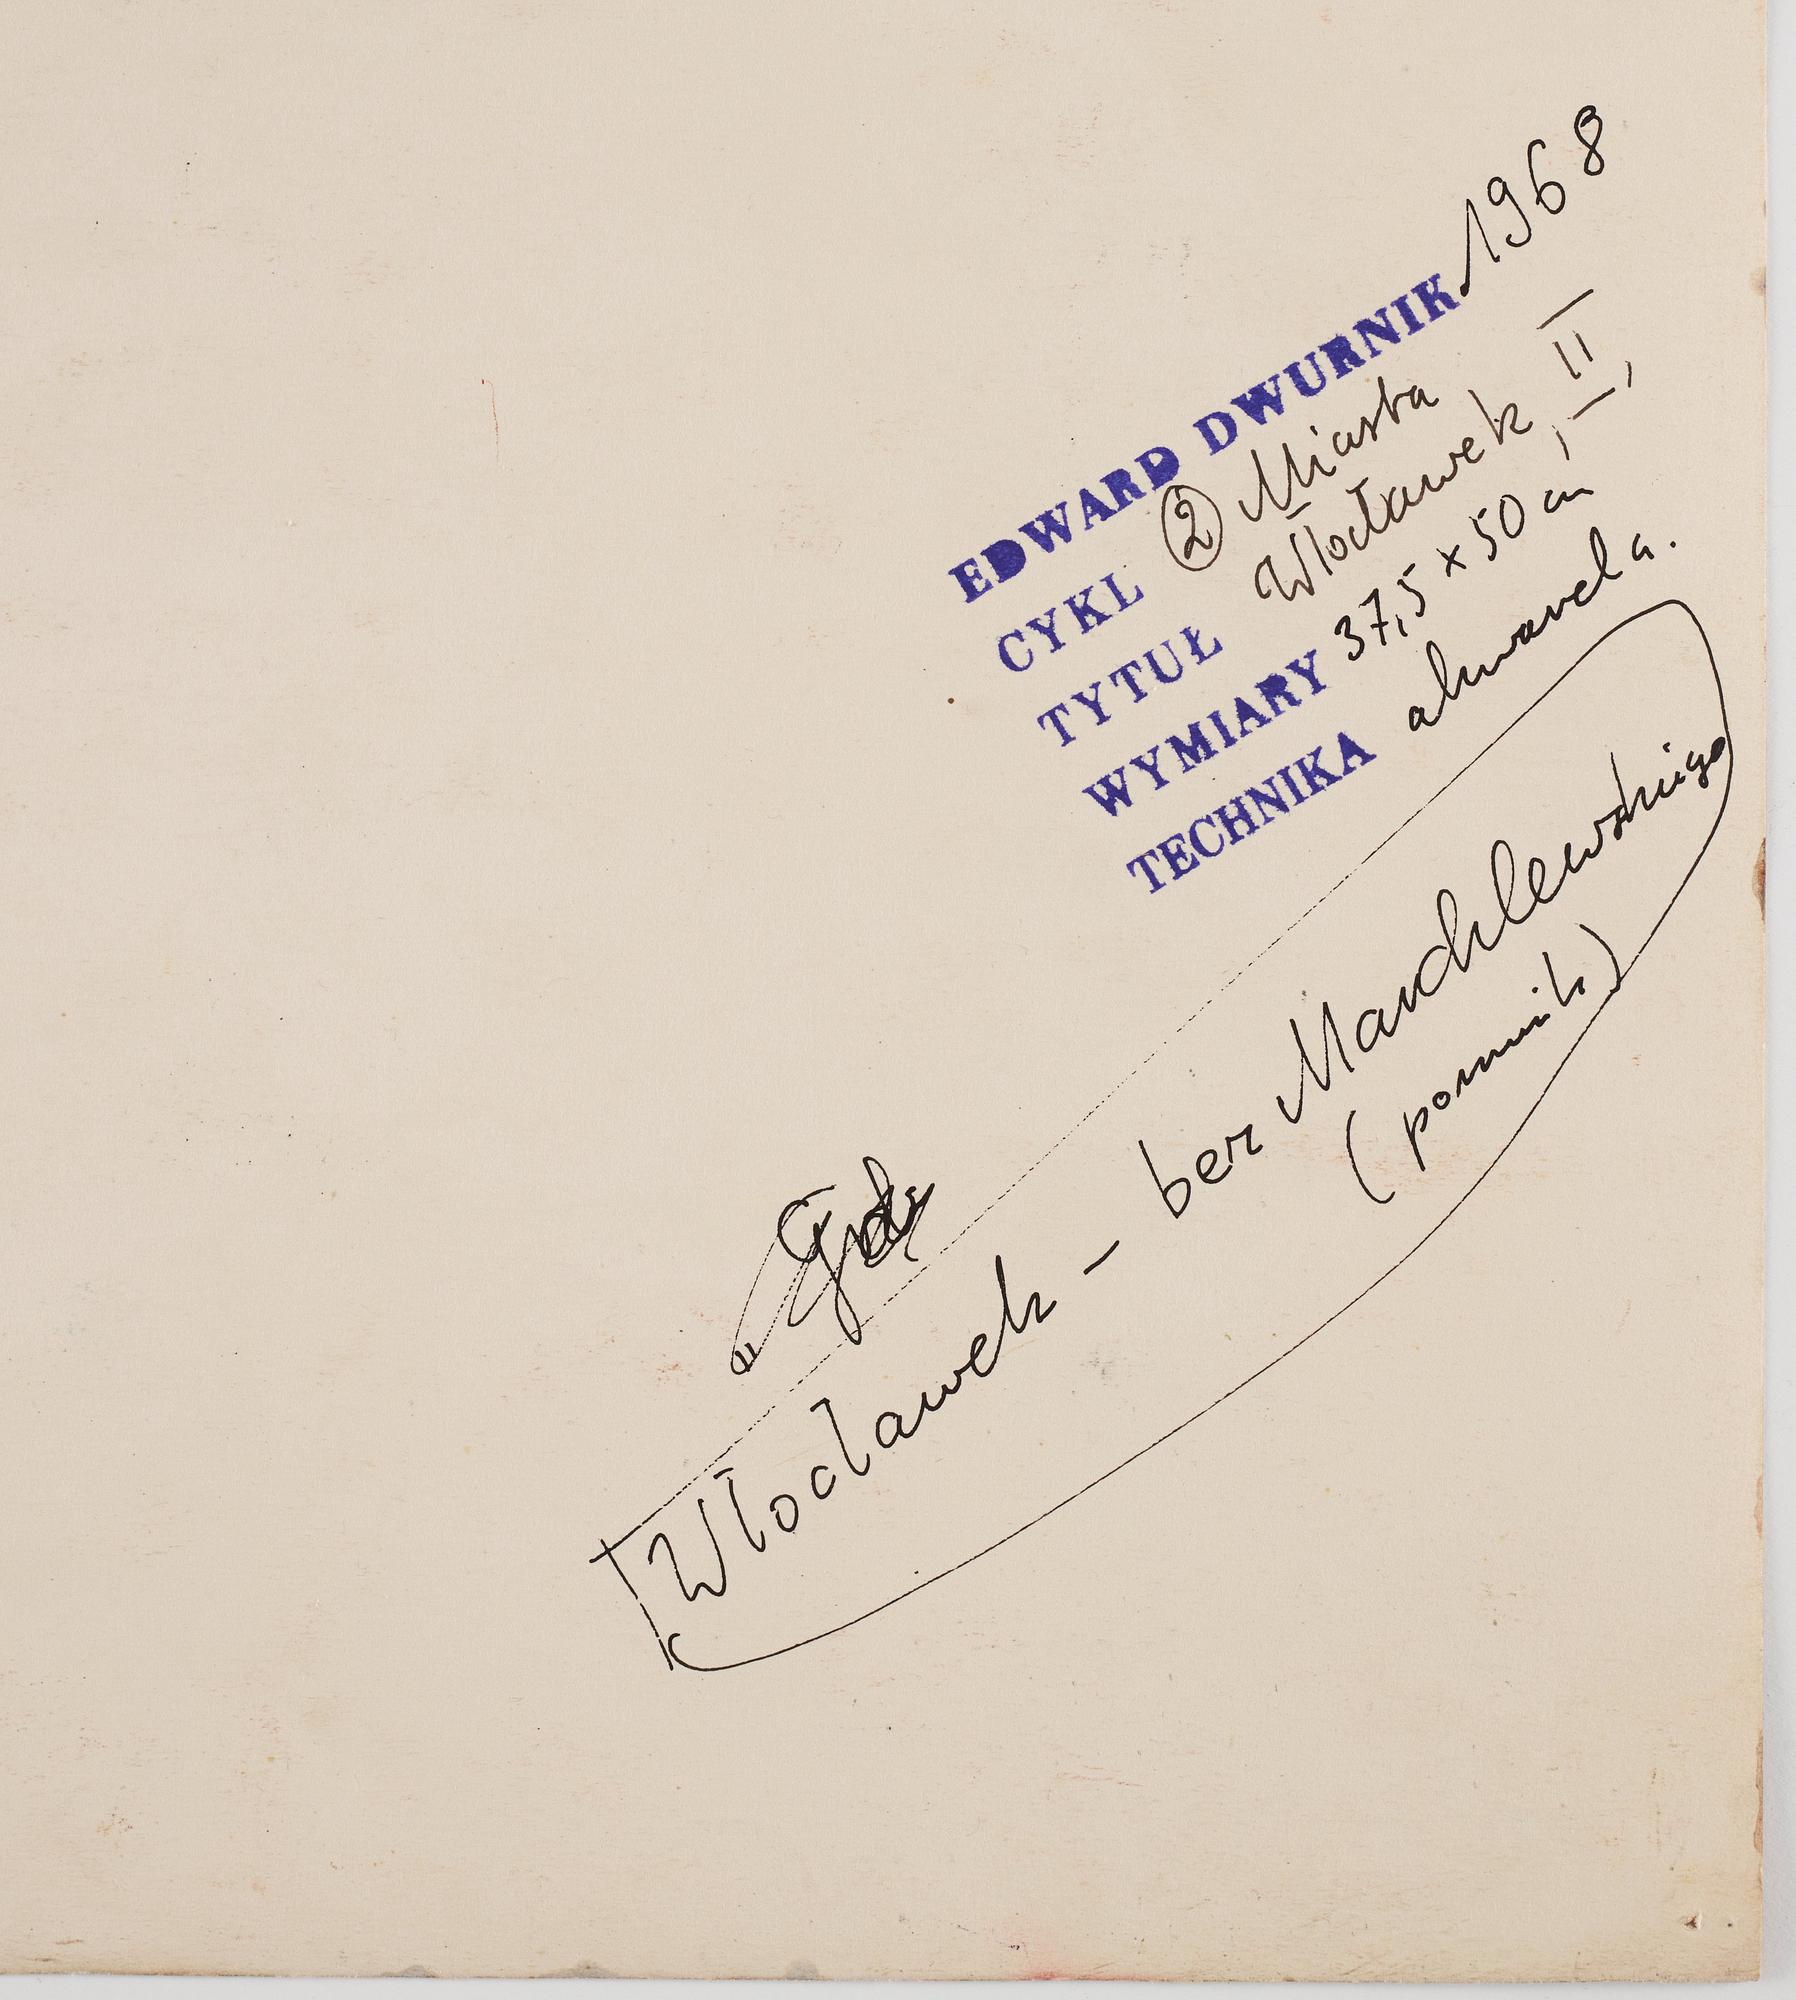 EDWARD DWURNIK 1968
CYKL ② Miasta
TYTUŁ Włocławek, II,
WYMIARY 37,5 x 50 cm
TECHNIKA akwarela.
Włocławek - bez Marchlewskiego
(pomnik)